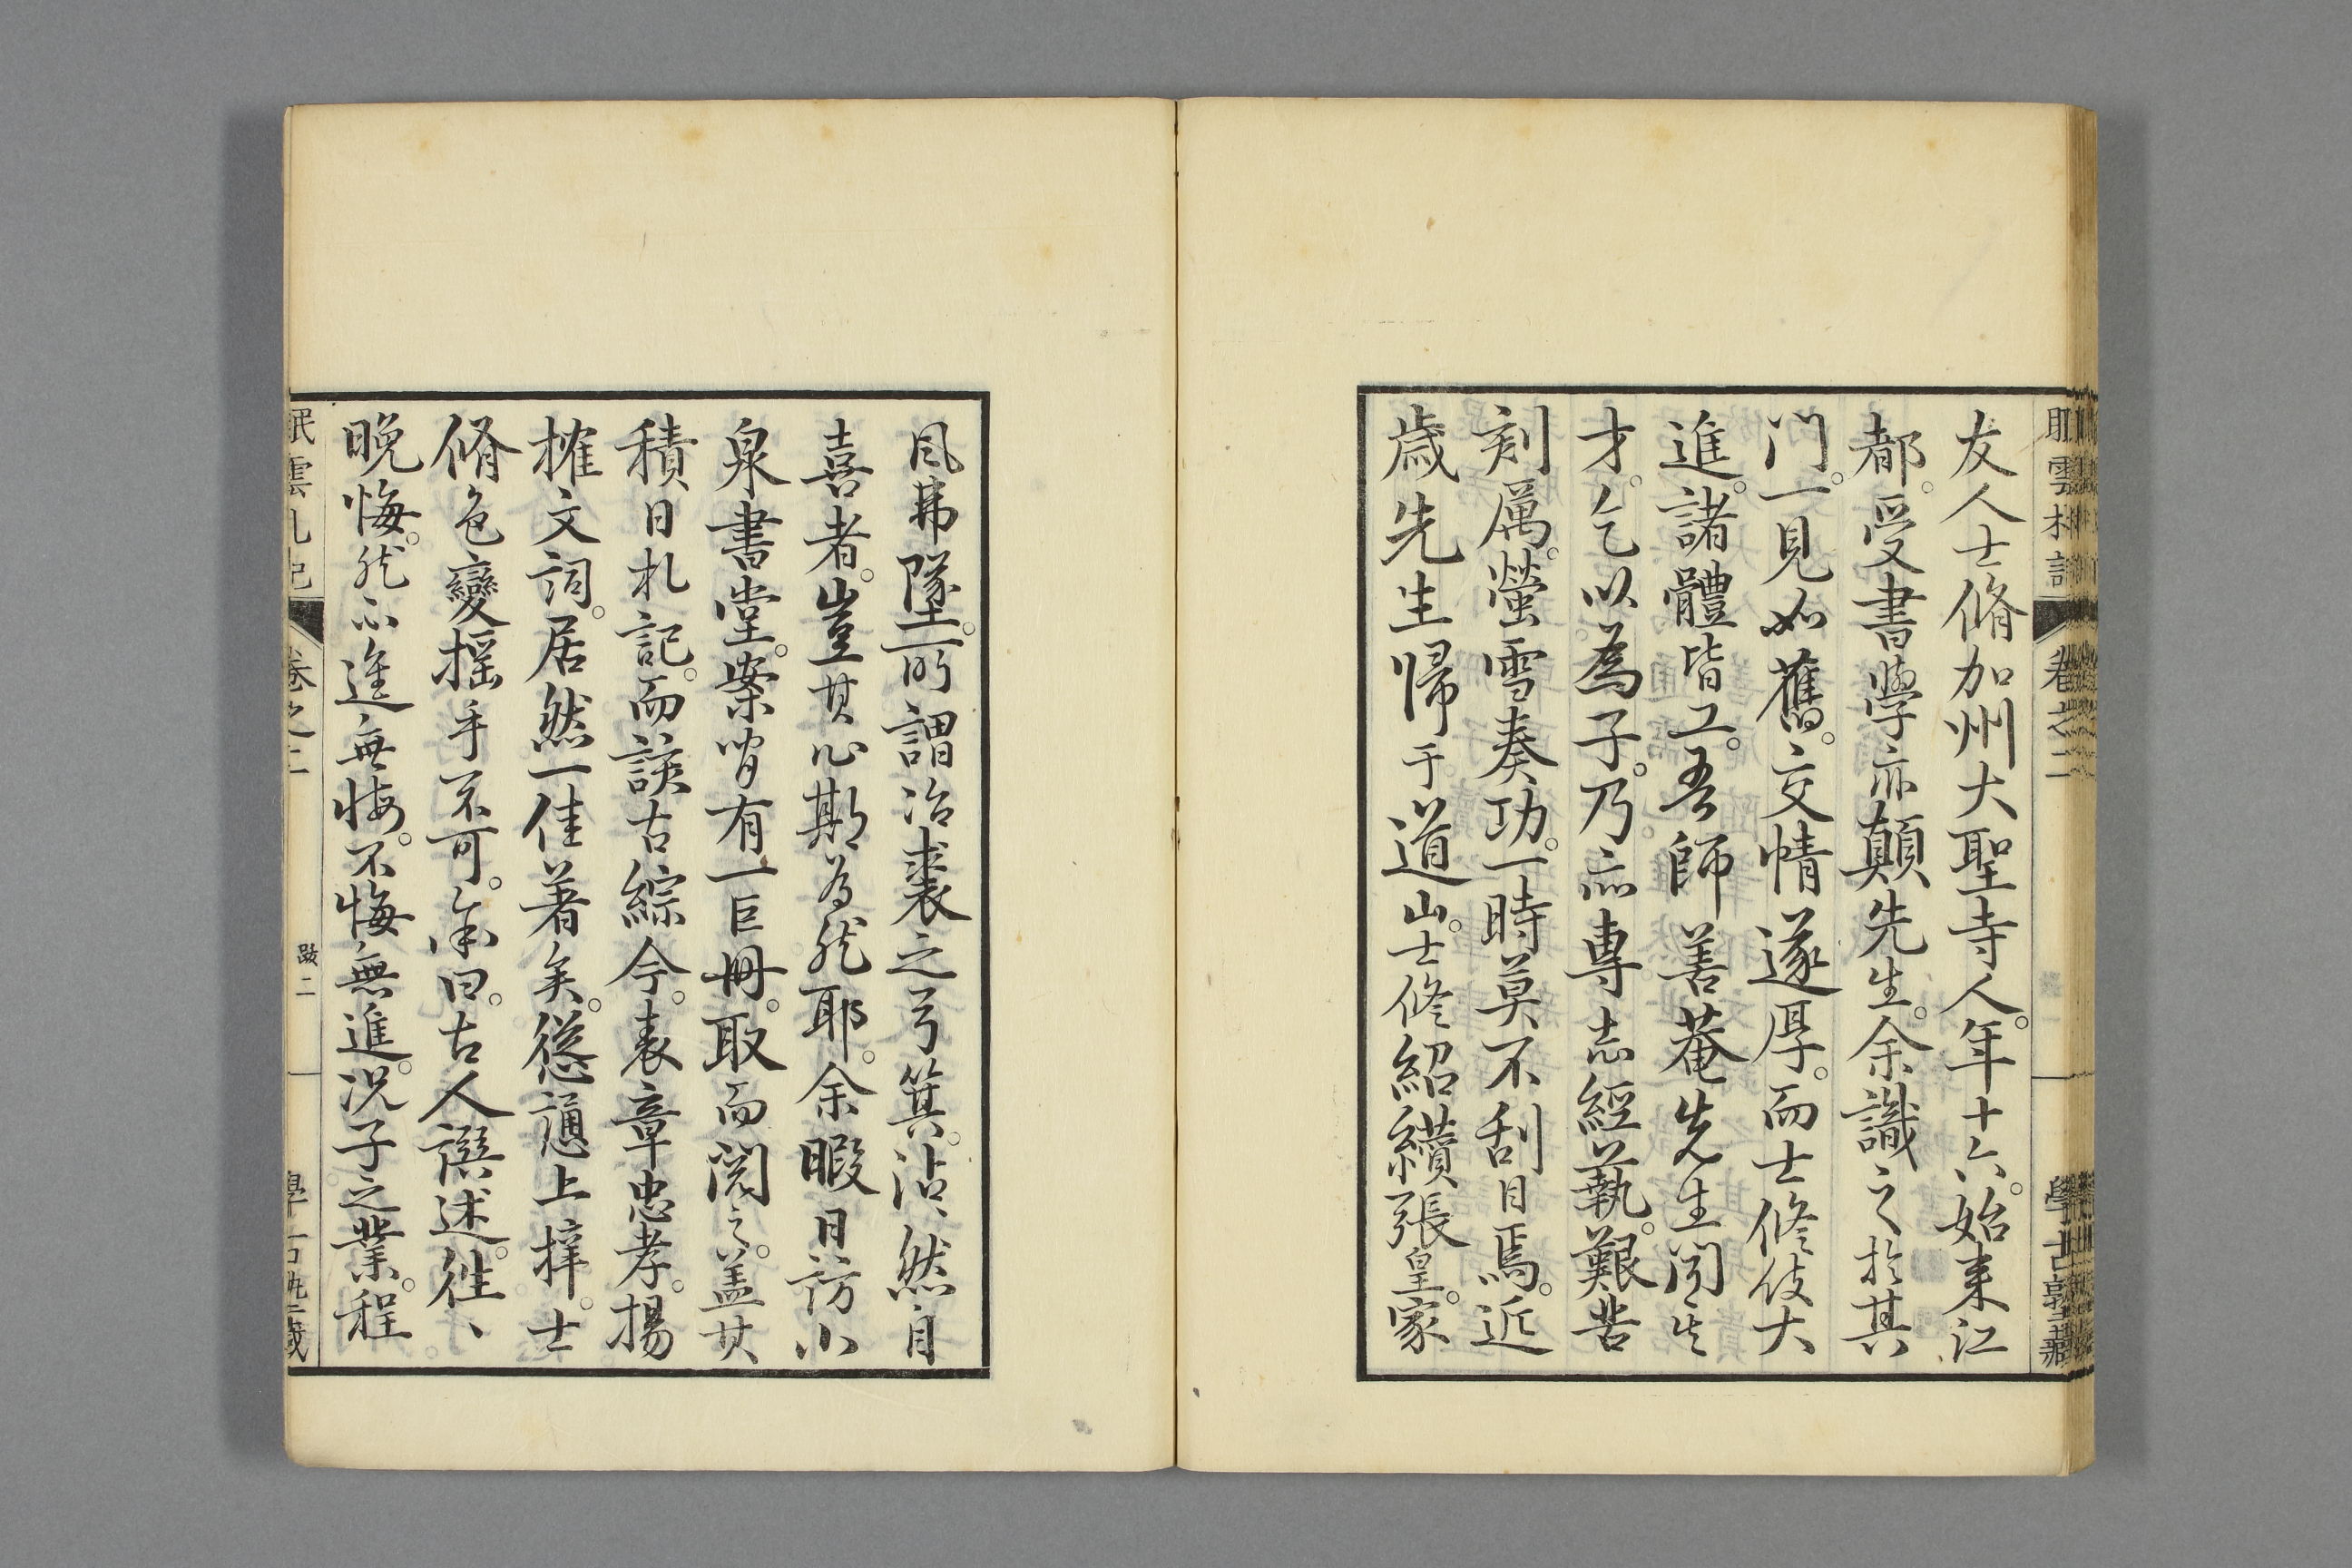 眠雲札記 卷之二 學古塾藏
友人士脩加州大聖寺人。年十六。始来江
都。受書學亦顛先生。余識之於其
門。一見如舊。交情遂厚。而士修伎大
進。諸體皆工。吾師善菴先生聞其
才。乞以為子。乃亦專志經藝。艱苦
刻厲。螢雪奏功。一時莫不刮目焉。近
歲先生帰于道山。士修紹纘張皇家
風弗墜。所謂冶裘之弓箕。沾、然自
喜者。豈其心期為然耶。余暇日訪小
泉書堂。案間有一巨冊。取而閱之。盖其
積日札記。而談古綜今。表章忠孝。揚
搉文詞。居然一佳著矣。慫慂上梓。士
脩色變搖手不可。余曰。古人譔述。往、
晚悔。然亦進無悔。不悔無進。况子之業。程
眠雲札記 卷之二 跋二 學古塾藏